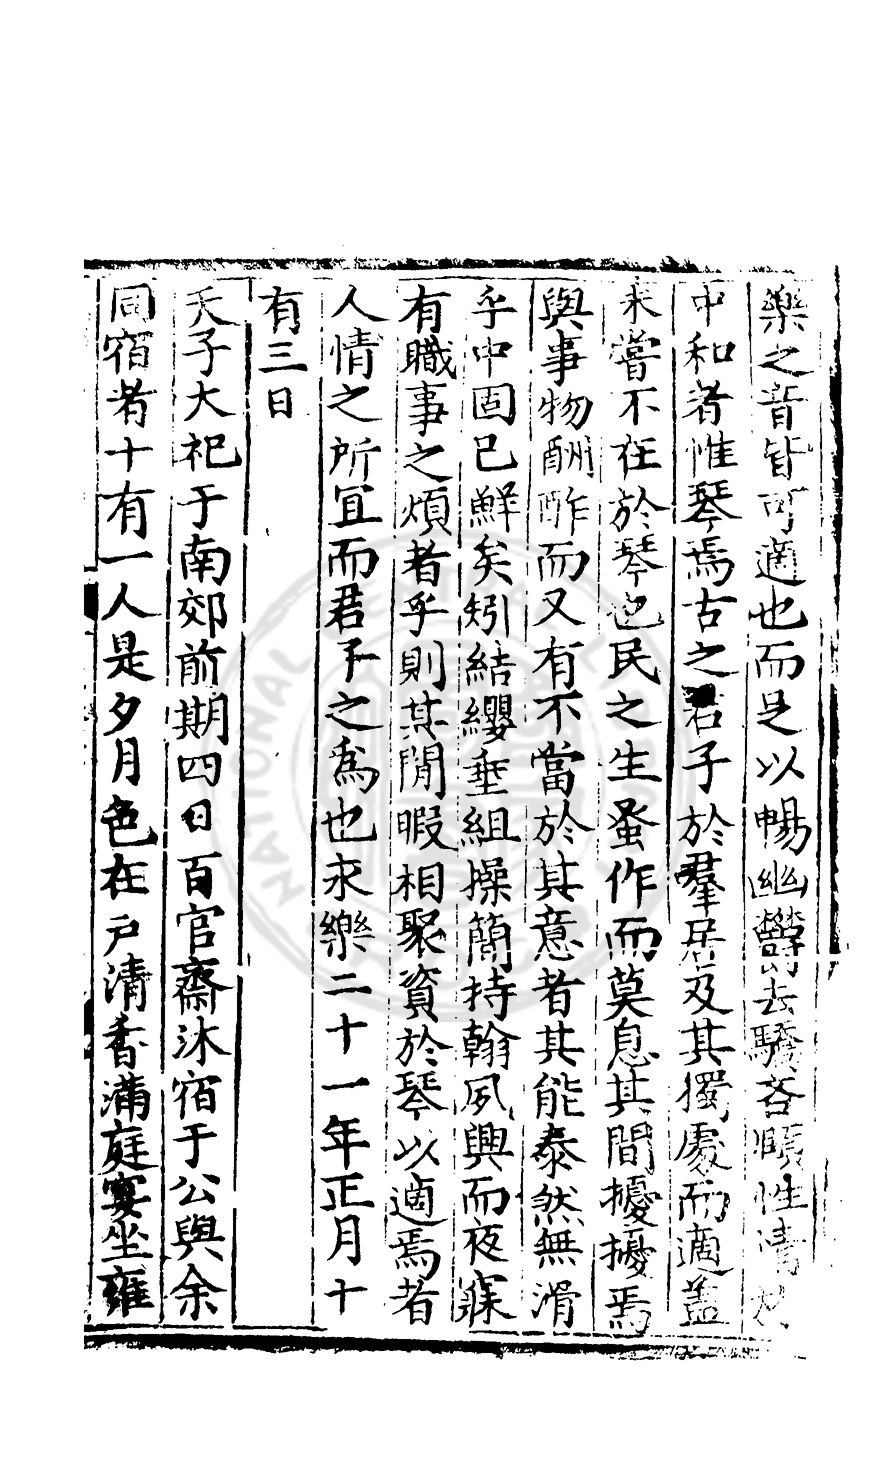 樂之音皆可適也而是以暢幽欝去驕吝頤性情於
中和者惟琴焉古之君子於羣居及其獨處而適盖
未嘗不在於琴也民之生蚤作而莫息其間擾擾焉
與事物酬酢而又有不當於其意者其能泰然無滑
乎中固已鮮矣矧結纓垂組操簡持翰夙興而夜寐
有職事之煩者乎則其閒暇相聚資於琴以適焉者
人情之所宜而君子之爲也永樂二十一年正月十
有三日
天子大祀于南郊前期四日百官齋沐宿于公與余
同宿者十有一人是夕月色在户清香滿庭宴坐雍
NATIONAL CENTRAL LIBRARY